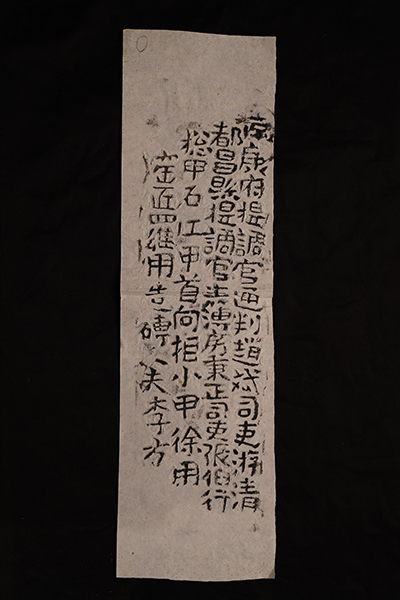 南康府提調官通判趙斌司吏游清
都昌縣提調官主簿房秉正司吏張伯行
総甲石工甲首向拒小甲徐用
窑匠羅用造磚人夫李方